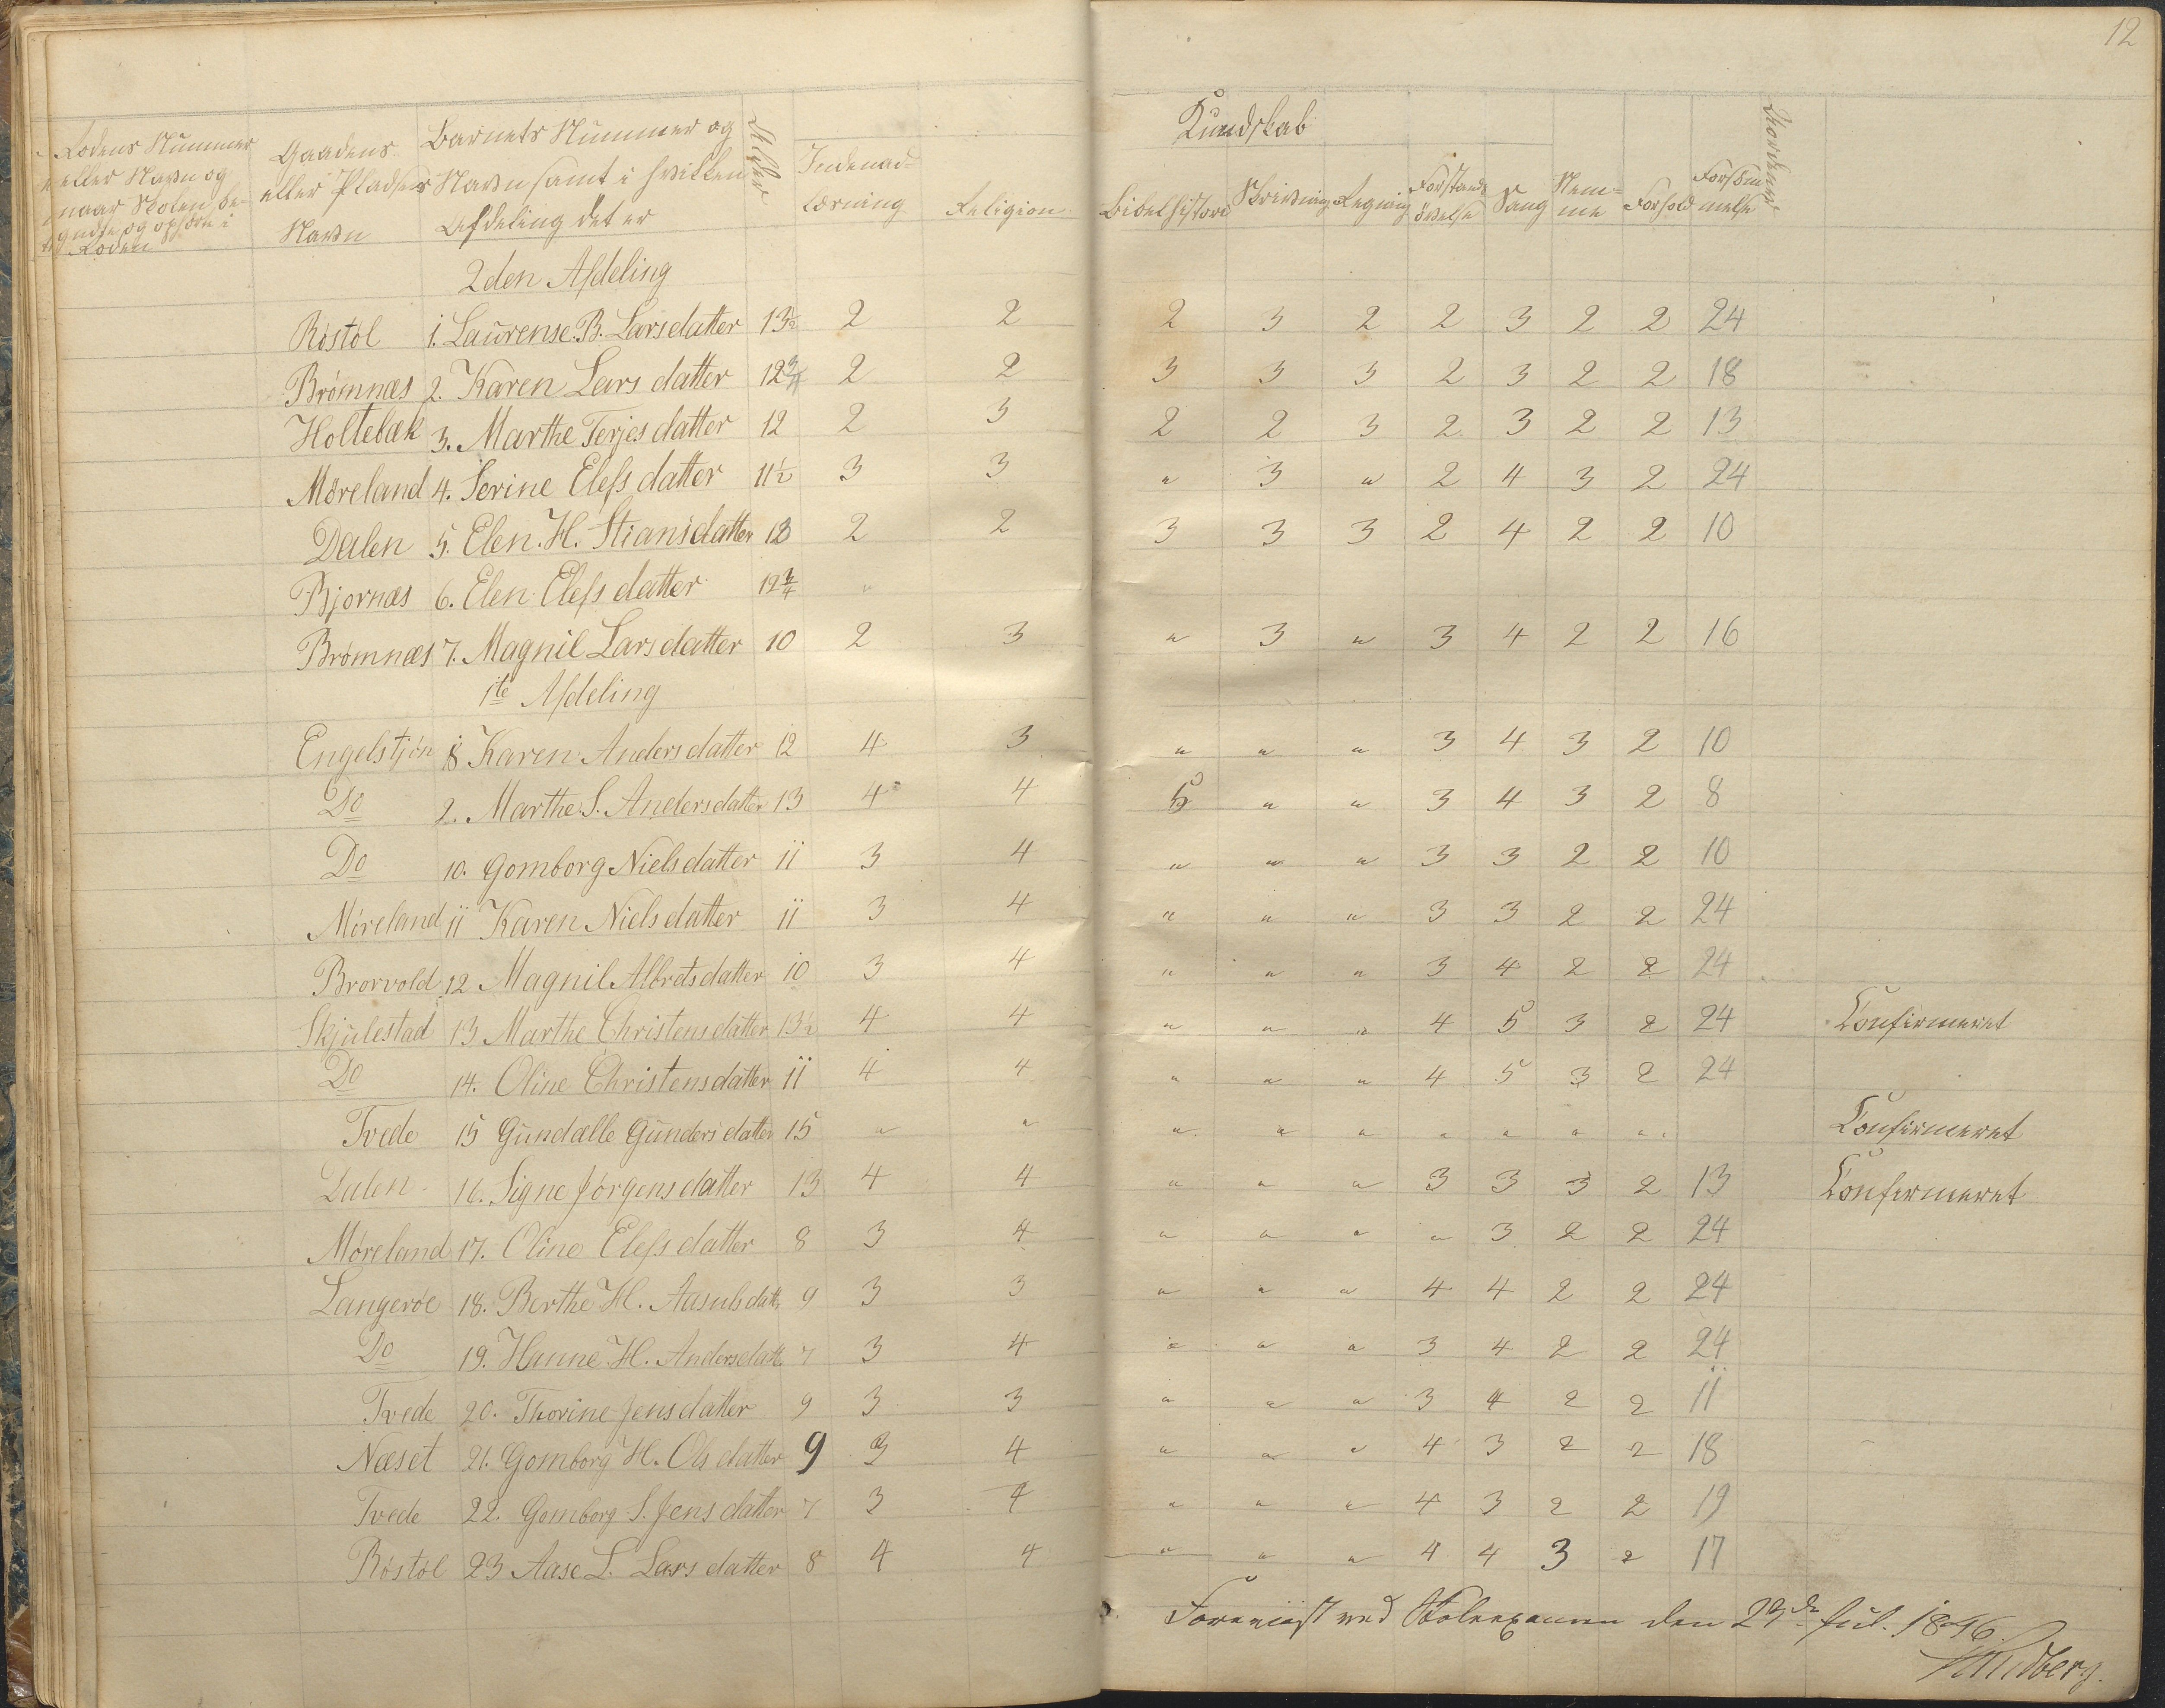 12
Rodens Nummer eller Navn og naar Skolen be- gyndte og ophørte i Roden
Gaadens eller Pladsers Navn
Barnets Nummer og Navn samt i hvilken Afdeling det er
Alder
Indenad= læsning
Religion
Kundskab
Bibelhistorie
Skrivning
Regning
Forstands øvelse
Sang
Nem= me
Forhold
Forsøm melse
2den Afdeling
Röstöl 1. Laurense. B. Larsdatter 13½ 2 2 2 3 2 2 3 2 2 24
Brömnæs 2. Karen Lars datter 12¾ 2 2 3 3 3 2 3 2 2 18
Holtebæk 3. Marthe Terjes datter 12 2 3 2 2 3 2 3 2 2 13
Möreland 4. Serine Elefs datter 11½ 3 3 " 3 " 2 4 3 2 24
Dalen 5. Elen. H. Stiansdatter 13 2 2 3 3 3 2 4 2 2 10
Bjornæs 6. Elen Elefs datter 12¾ "
Brömnæs 7. Magnil Lars datter 10 2 3 " 3 " 3 4 2 2 16
1te Afdeling
Engelstjön 8 Karen Anders datter 12 4 3 " " " 3 4 3 2 10
Do 9. Marthe S. Andersdatter 13 4 4 5 " " 3 4 3 2 8
Do 10. Gomborg Niels datter 11 3 4 " " " 3 3 2 2 10
Möreland 11 Karen Niels datter 11 3 4 " " " 3 3 2 2 24
Brorvold 12 Magnil Albretsdatter 10 3 4 " " " 3 4 2 2 24
Skjulestad 13 Marthe Christensdatter 13½ 4 4 " " " 4 5 3 2 24 Confirmeret
Do 14. Oline Christensdatter 11 4 4 " " " 4 5 3 2 24
Tvede 15 Gundalle Gunders datter 15 " " " " " " " " " Confirmeret
Dalen 16. Signe Jörgens datter 13 4 4 " " " 3 3 3 2 13 Confermeret
Möreland 17. Oline Elefs datter 8 3 4 " " " " 3 2 2 24
Langeröe 18. Berthe H. Aasulsdatt 9 3 3 " " " 4 4 2 2 24
Do 19. Hanne H. Andersdatt 7 3 4 " " " 3 4 2 2 24
Tvede 20. Thorine Jens datter 9 3 3 " " " 3 4 2 2 11
Næset 21. Gomborg H. Ols datter 9 3 4 " " " 4 3 2 2 18
Tvede 22. Gomborg S. Jens datter 7 3 4 " " " 4 3 2 2 19
Röstöl 23 Aase L. Lars datter 8 4 4 " " " 4 4 3 2 17
Foreviist ved Skoleexamen den 29de Jul. 1846.